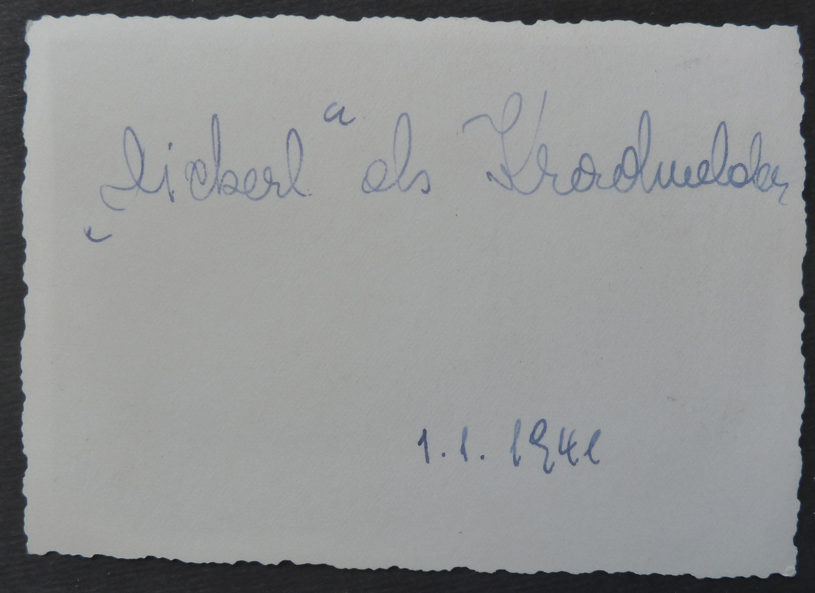 „Lickerl“ als Kradmelder
1.1.1941